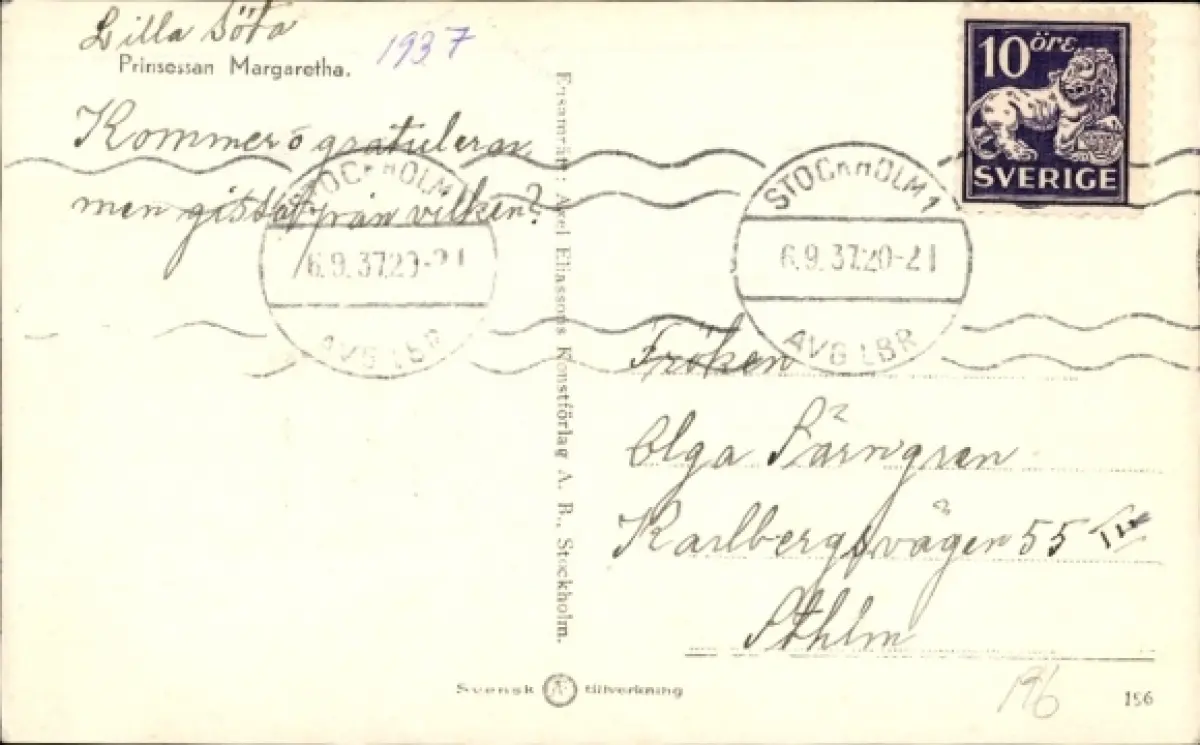 Lilla Söta
Prinsessan Margaretha.
1937
Kommer o gratulerar
men gissa från vilken?
STOCKHOLM 1
6.9.37.20-21
AVG LBR
Ensamrätt: Axel Eliassons Konstförlag A. B., Stockholm.
10 öre
SVERIGE
STOCKHOLM 1
6.9.37.20-21
AVG LBR
Fröken
Olga Färngren
Karlbergsvägen 55 III
Sthlm
Svensk tillverkning
196
156